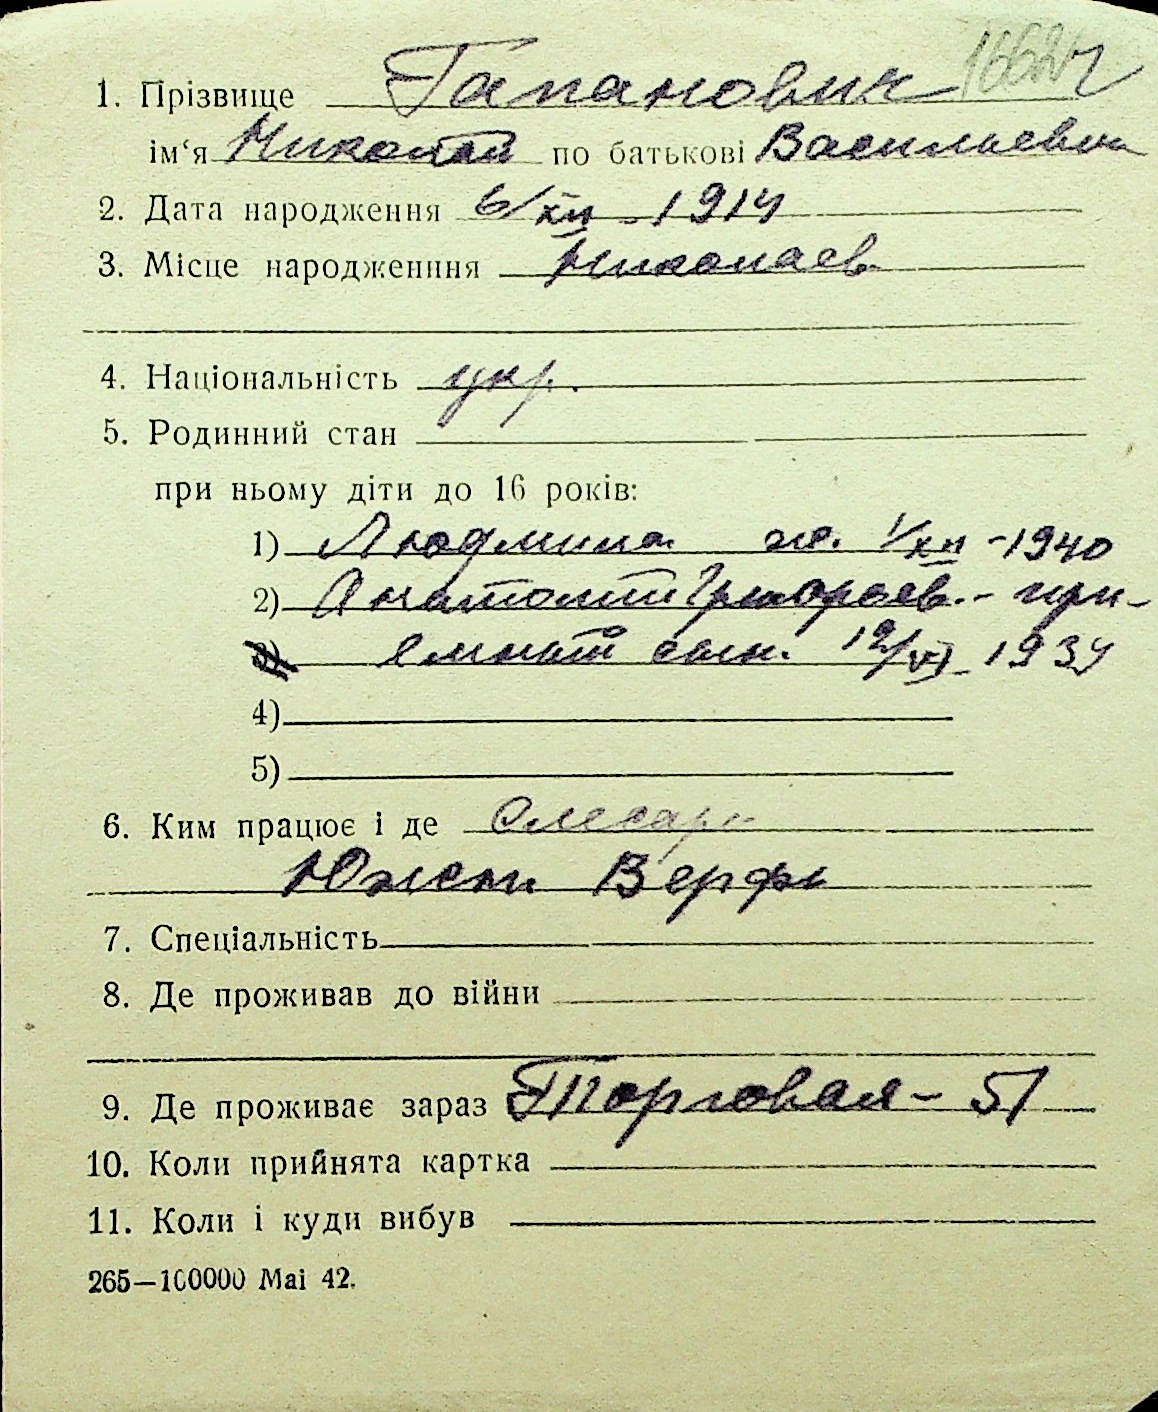 16624
1. Прізвище Гапанович
ім‘я Николай по батькові Васильевич
2. Дата народження 6/XII 1914
3. Місце народженння Николаев
4. Національність укр.
5. Родинний стан
при ньому діти до 16 років:
1) Людмила ж. 1/XII - 1940
2) Анатолий Григорьев. - при-
3) емный сын. 12/VI 1934
4)
5)
6. Ким працює і де Слесарь
Южн. Верфь
7. Спеціальність
8. Де проживав до війни
9. Де проживає зараз Торговая - 51
10. Коли прийнята картка
11. Коли і куди вибув
265—100000 Mai 42.